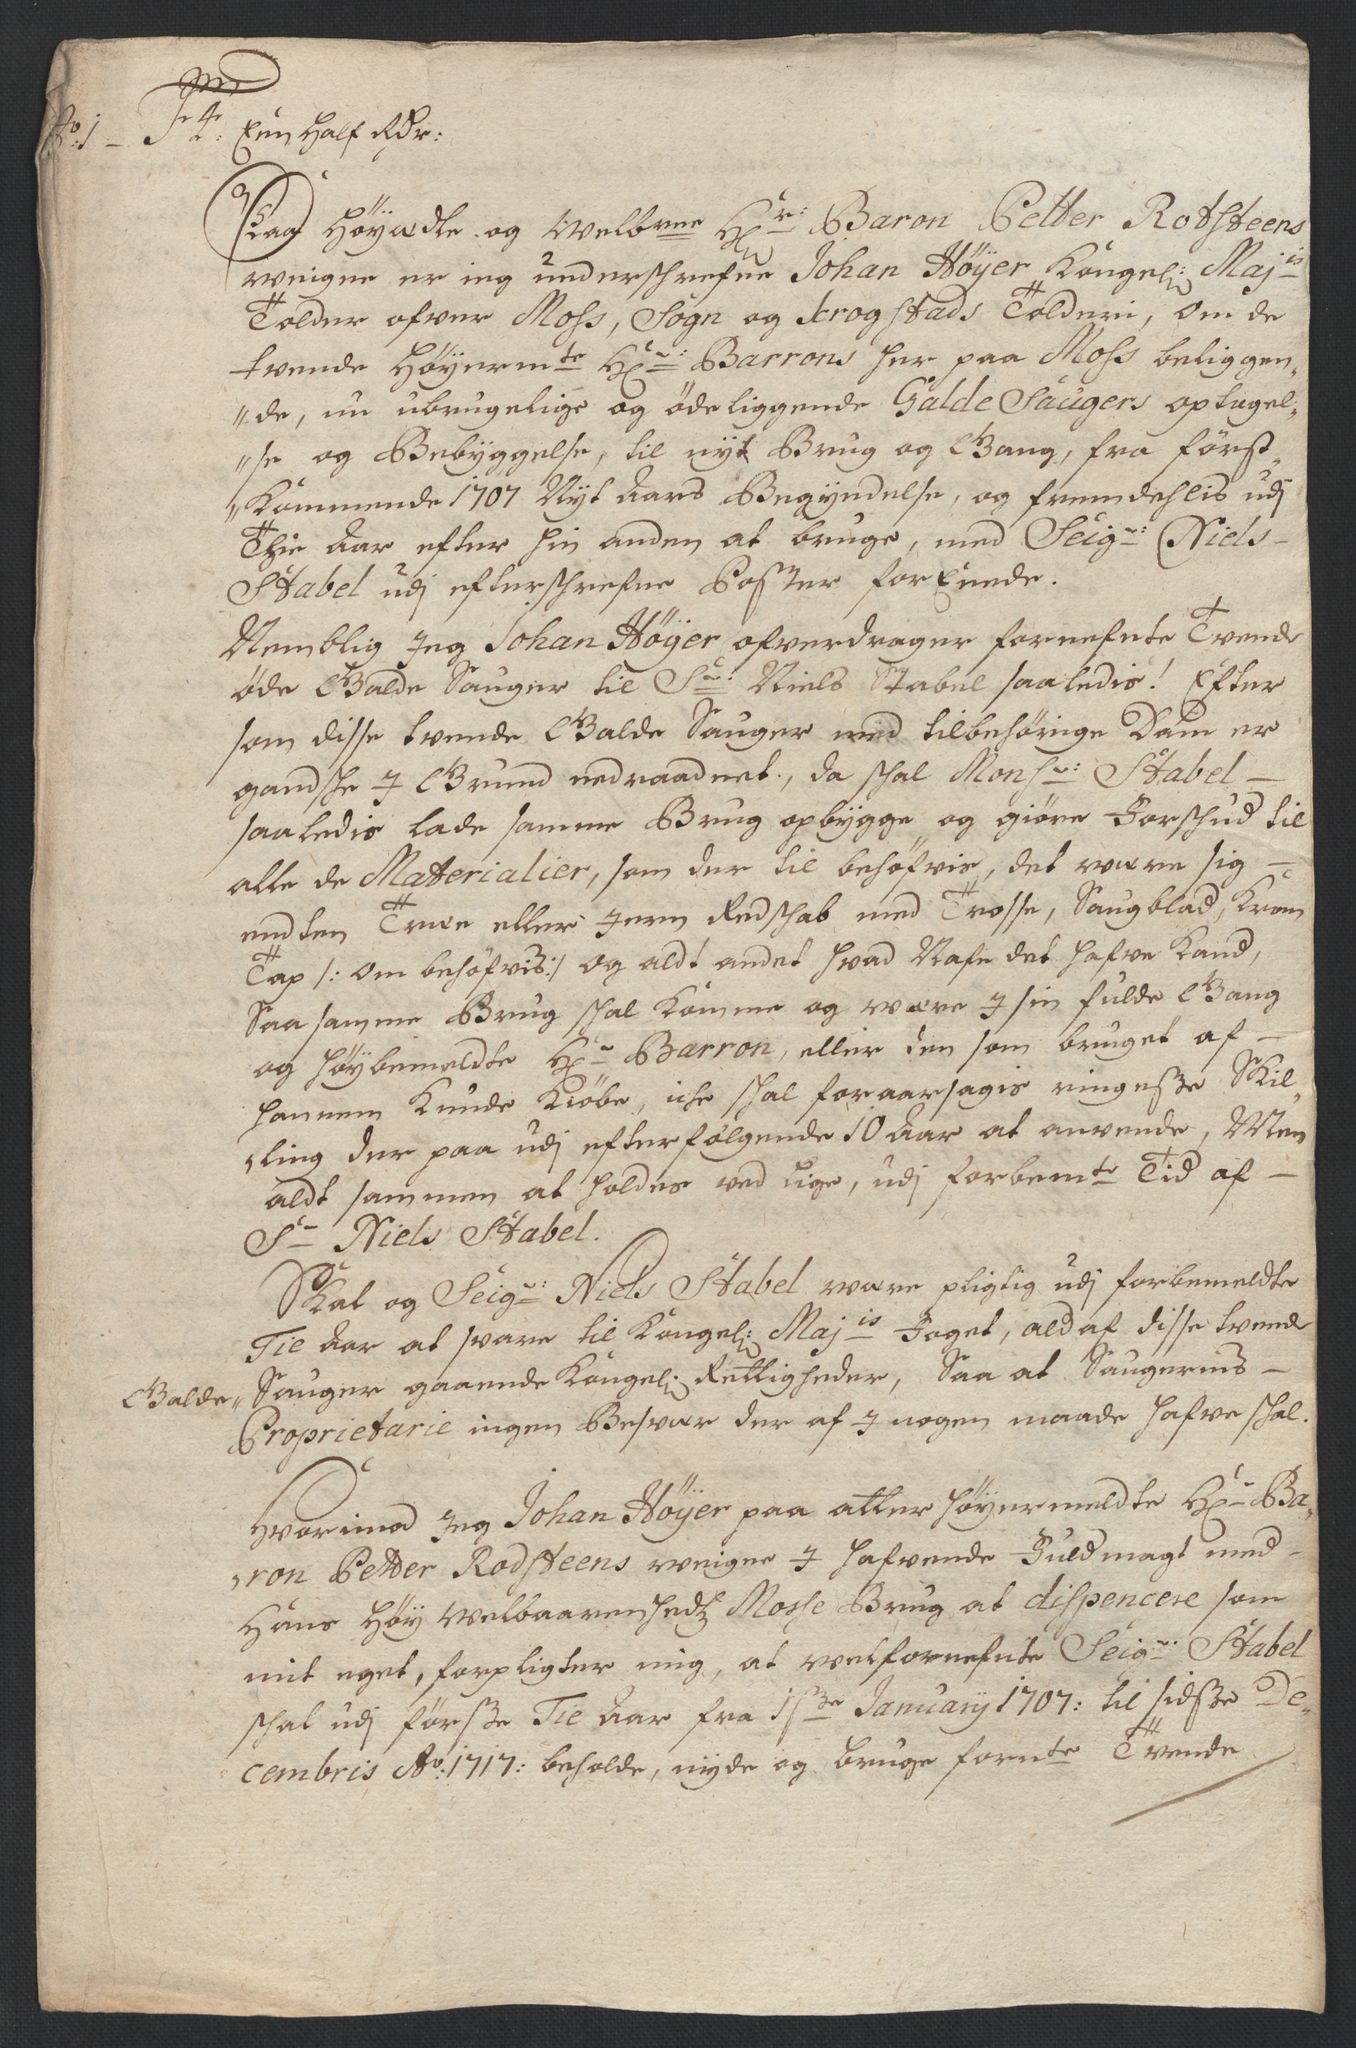 No: 1 — F 4: Een Half Rdr:
Paa Höÿædle og Welbrne Hr: Baron Petter Rotsteens
weigne er ieg underschrefne Johan Höÿer Kongel: Majts
Tolder ofver Moss, Sogn og Krogstads Tolderi, om de
tvende Höyermte Hr: Barrons her paa Moss beliggen„
„de, nu ubrugelige og öde liggende Galde Saugers optagel„
„se og Bebyggelse, til nÿt Brug og Gang, fra först„
„kommende 1707 Nÿt Aars Begÿndelse, og fremdehlis udj
Thie Aar efter hin anden at bruge, med Seigr: Niels
Stabel udj efterschrefne Poster forEenede.
Nemblig Jeg Johan Höÿer ofverdrager fornefnte Tvende
öde Galde Sauger til Sr: Niels Stabel saaledis! Efter
som disse tvende Galde Sauger med tilbehörige Dam er
gandsche J Grund nedraadnet, da schal Monsr: Stabel —
saaledis lade samme Brug opbÿgge og giöre Forschud til
alle de Materialier, som der til behöfvis, det være sig —
endten Træe eller Jern Redschab med Trosse, Saugblad, Kran
Tap /: om behöfvis:/ og aldt andet hvad Nafn det hafve kand,
Saa samme Brug schal komme og være J sin fulde Gang
og höÿbemeldte Hr Barron, eller den som bruget af —
hannem kunde kiöbe, iche schal foraarsagis ringeste Skil„
„ling der paa udj efterfölgende 10 Aar at anvende, Men
aldt sammen at holdes ved Lige, udj forbemte Tid af —
Sr Niels Stabel.
Skal og Seigr: Niels Stabel være pligtig udj forbemeldte
Tie Aar at svare til Kongel: Majts Foget, ald af disse tvende
Galde„ Sauger gaaende Kongel: Rettigheder, Saa at Saugernis —
Proprietarie ingen Besvær der af J nogen maade hafve schal.
Hvorimod Jeg Johan Höÿer paa atter höÿermeldte Hr Ba„
„ron Petter Rodsteens weigne J hafvende Fuldmagt med —
Hans Höÿ Welbaarenhedtz Mosse Brug at dispencere som
mit eget, forpligter mig, at velfornefnte Seigr: Stabel
schal udj förste Tie Aar fra 1ste Januarÿ 1707: til sidste De„
cembris Ao: 1717: beholde, nÿde og bruge fornte Tvende